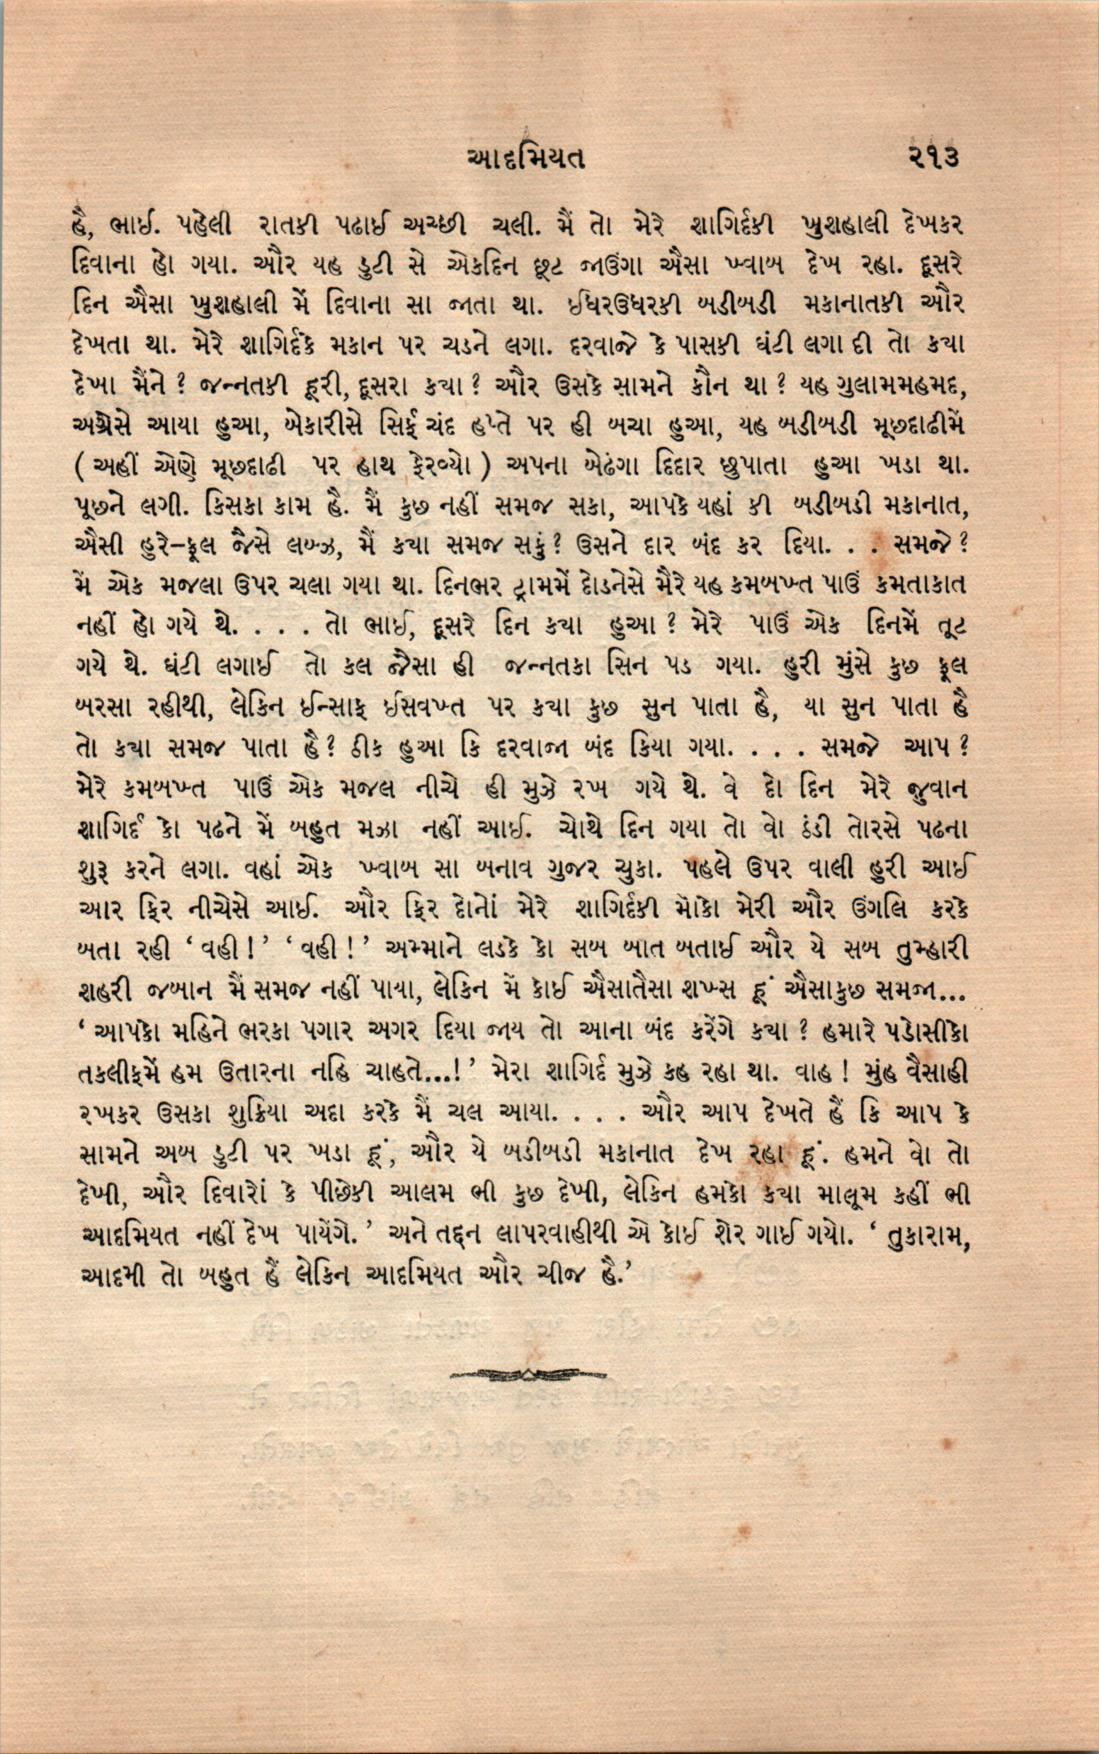 આદમિયત ૨૧૩
હૈ, ભાઈ. પહેલી રાતકી પઢાઈ અચ્છી ચલી. મૈં તો મેરે શાગિર્દકી ખુશહાલી દેખકર
દિવાના હો ગયા. ઔર યહ ડુટી સે એકદિન છૂટ જાઉંગા ઐસા ખ્વાબ દેખ રહા. દૂસરે
દિન ઐસા ખુશહાલી મેં દિવાના સા જાતા થા. ઈધરઉધરકી બડીબડી મકાનાતકી ઔર
દેખતા થા. મેરે શાગિર્દકે મકાન પર ચડને લગા. દરવાજે કે પાસકી ઘંટી લગા દી તો ક્યા
દેખા મૈંને ? જન્નતકી હૂરી, દૂસરા ક્યા ? ઔર ઉસકે સામને કૌન થા ? યહ ગુલામમહમદ,
અગ્રેસે આયા હુઆ, બેકારીસે સિર્ફ ચંદ હપ્તે પર હી બચા હુઆ, યહ બડીબડી મૂછદાઢીમેં
( અહીં એણે મૂછદાઢી પર હાથ ફેરવ્યો ) અપના બેઢંગા દિદાર છુપાતા હુઆ ખડા થા.
પૂછને લગી. કિસકા કામ હૈ. મૈં કુછ નહીં સમજ સકા, આપકે યહાં કી બડીબડી મકાનાત,
ઐસી હુરે–ફૂલ જૈસે લબ્ઝ, મૈં ક્યા સમજ સકું? ઉસને દાર બંદ કર દિયા. . . સમજે ?
મેં એક મજલા ઉપર ચલા ગયા થા. દિનભર ટ્રામમેં દોડનેસે મૈરે યહ કમબખ્ત પાઉં કમતાકાત
નહીં હો ગયે થે. . . . તો ભાઈ, દૂસરે દિન ક્યા હુઆ ? મેરે પાઉં એક દિનમેં તૂટ
ગયે થે. ઘંટી લગાઈ તો કલ જૈસા હી જન્નતકા સિન પડ ગયા. હુરી મુંસે કુછ ફૂલ
બરસા રહીથી, લેકિન ઈન્સાફ ઈસવખ્ત પર ક્યા કુછ સુન પાતા હૈ, યા સુન પાતા હૈ
તો ક્યા સમજ પાતા હૈ? ઠીક હુઆ કિ દરવાજા બંદ કિયા ગયા. . . . સમજે આપ ?
મેરે કમબખ્ત પાઉં એક મજલ નીચે હી મુઝે રખ ગયે થે. વે દો દિન મેરે જુવાન
શાગિર્દ કો પઢને મેં બહુત મઝા નહીં આઈ. ચોથે દિન ગયા તો વો ઠંડી તોરસે પઢના
શુરૂ કરને લગા. વહાં એક ખ્વાબ સા બનાવ ગુજર ચુકા. પહલે ઉપર વાલી હુરી આઈ
આર ફિર નીચેસે આઈ. ઔર ફિર દોનોં મેરે શાગિર્દકી મૉકો મેરી ઔર ઉંગલિ કરકે
બતા રહી ‘ વહી ! ’ ‘ વહી ! ’ અમ્માને લડકે કો સબ બાત બતાઈ ઔર યે સબ તુમ્હારી
શહરી જબાન મૈં સમજ નહીં પાયા, લેકિન મેં કોઈ ઐસાતૈસા શખ્સ હૂં ઐસાકુછ સમજા...
‘ આપકો મહિને ભરકા પગાર અગર દિયા જાય તો આના બંદ કરેંગે ક્યા ? હમારે પડોસીકો
તકલીફમેં હમ ઉતારના નહિ ચાહતે...! ’ મેરા શાગિર્દ મુઝે કહ રહા થા. વાહ ! મુંહ વૈસાહી
રખકર ઉસકા શુક્રિયા અદા કરકે મૈં ચલ આયા. . . . ઔર આપ દેખતે હૈં કિ આપ કે
સામને અબ ડુટી પર ખડા હૂં, ઔર યે બડીબડી મકાનાત દેખ રહા હૂં. હમને વો તો
દેખી, ઔર દિવારોં કે પીછેકી આલમ ભી કુછ દેખી, લેકિન હમકો ક્યા માલૂમ કહીં ભી
આદમિયત નહીં દેખ પાયેંગે. ’ અને તદ્દન લાપરવાહીથી એ કોઈ શેર ગાઈ ગયો. ‘ તુકારામ,
આદમી તો બહુત હૈં લેકિન આદમિયત ઔર ચીજ હૈ.’